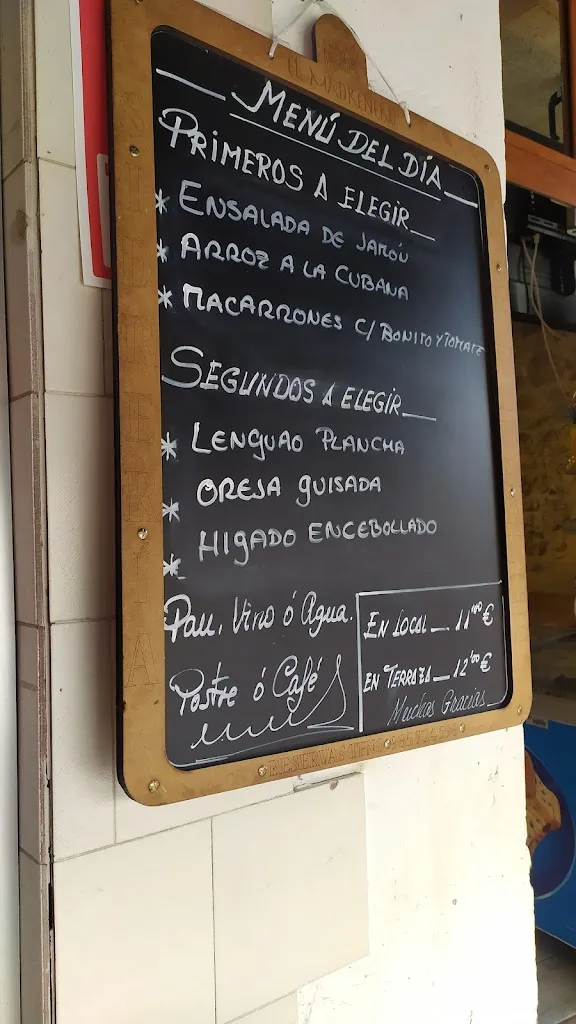 EL MADREÑERU
MENÚ DEL DÍA
PRIMEROS A ELEGIR
* ENSALADA DE JAMÓN
* ARROZ A LA CUBANA
* MACARRONES C/ BONITO Y TOMATE
SEGUNDOS A ELEGIR
* LENGUAO PLANCHA
* OREJA GUISADA
* HIGADO ENCEBOLLADO
Pan, Vino ó Agua.
Postre ó Café
EN LOCAL 11'00 €
EN TERRAZA 12'00 €
Muchas Gracias
RESERVAS TEN:
SIDRERÍA